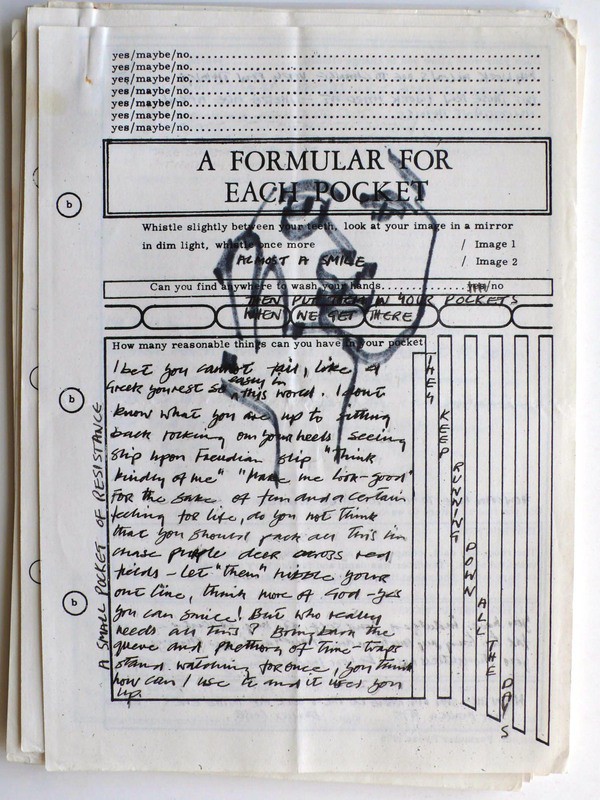 yes/maybe/no
yes/maybe/no
yes/maybe/no
yes/maybe/no
yes/maybe/no
yes/maybe/no
yes/maybe/no
A FORMULAR FOR
EACH POCKET
b
Whistle slightly between your teeth, look at your image in a mirror
in dim light, whistle once more / Image 1
ALMOST A SMILE / Image 2
Can you find anywhere to wash your hands. yes/no
THEN PUT THEM IN YOUR POCKETS
WHEN WE GET THERE
How many reasonable things can you have in your pocket
I bet you cannot fail, like a
Greek you rest so easy in
this world. I dont
know what you are up to sitting
back rocking on your heels seeing
slip upon Freudian slip "Think
kindly of me" "Make me look-good"
For the sake of fun and a certain
feeling for life, do you not think
that you should pack all this in
chase purple deer across red
fields - let "them" your
out line, think more of God - yes
you can smile! But who really
needs all this? Bring back the
queue and of time-traps
stand watching for once, you think
how can I use it and it uses you
up.
THEY
KEEP
RUNNING
DOWN
ALL
THE
DAYS
A SMALL POCKET OF RESISTANCE
b
b